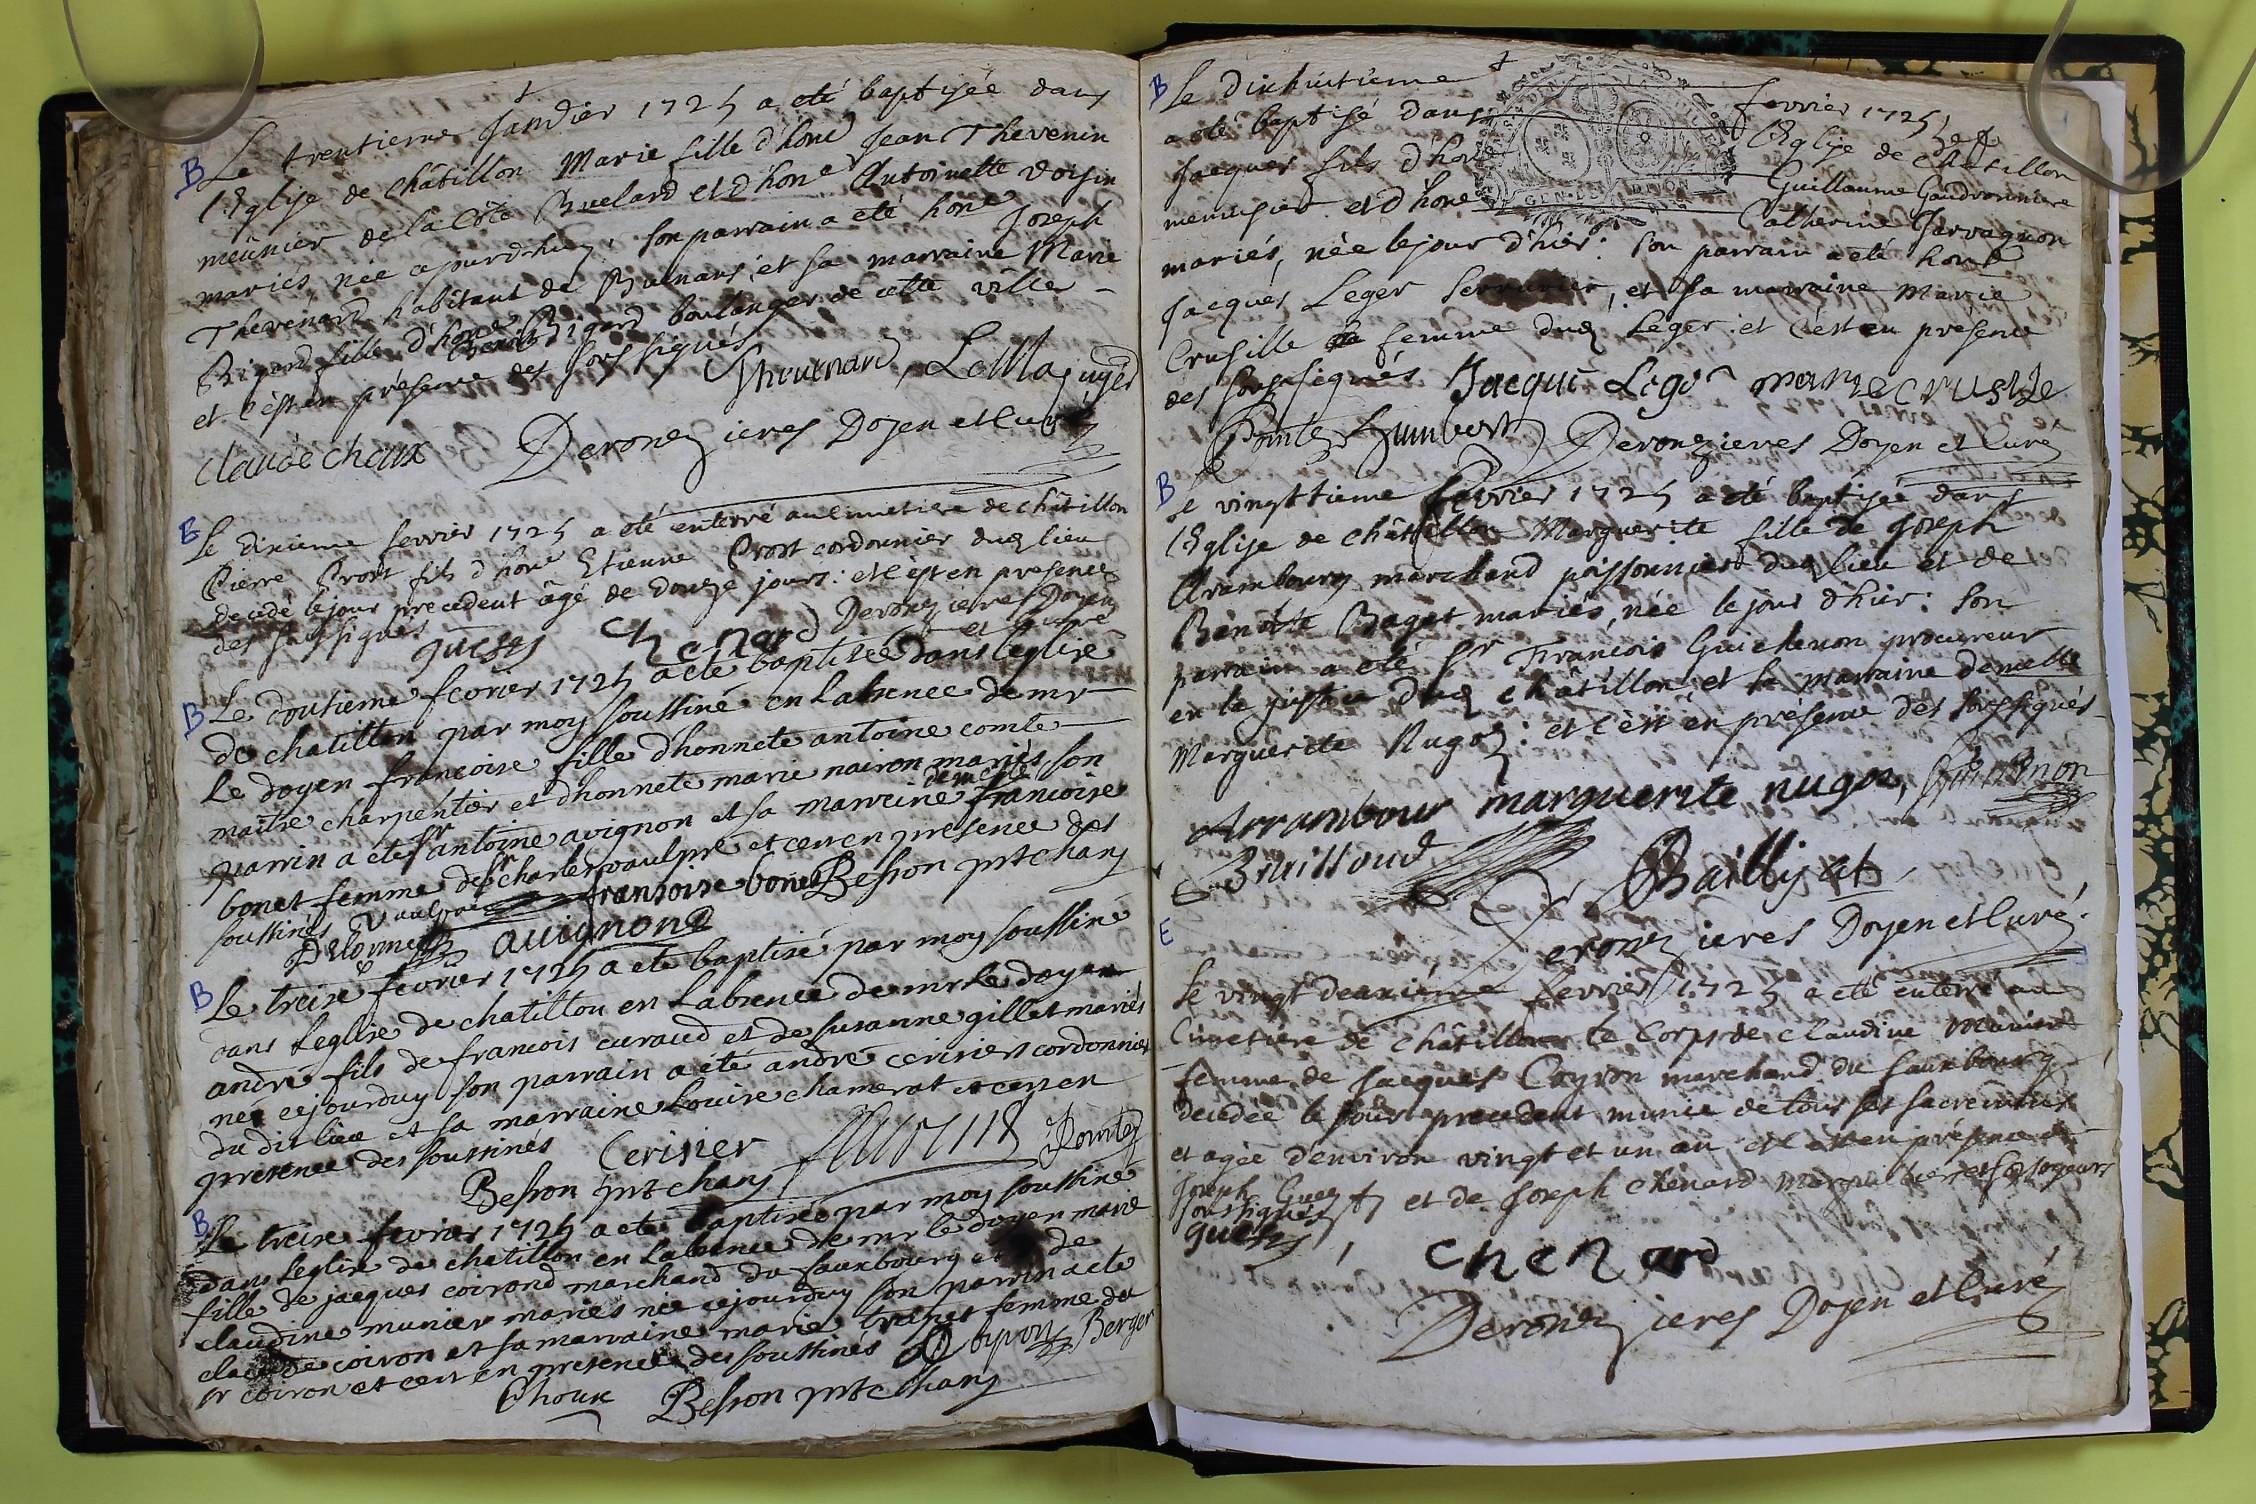 B Le trentieme Janvier 1725 a eté baptisée dans
l'Eglise de châtillon Marie fille d'hone Jean Thevenin
meûnier de la côte Buelard et d'hone Antoinette Voisin
mariés, née ajourd-huy: son parrain a eté hone Joseph
Thevenard habitant de Buenans, et sa marraine Marie
Bigard fille d'hone Benoit Bigard boulanger de cette ville
et c'est en présence des soussignés Thevenard, LeMajuyer
claude choux Deronzieres Doyen et Curé
E Le dixieme fevrier 1725 a eté enterré au cimetiere de châtillon
Pierre Prost fils d'hone Etienne Prost cordonnier dud lieu
decedé le jour precedent âgé de douze jours: et c'est en presence
des soussignés guesty chenard Deronzieres Doyen
et curé
B Le doutieme fevrier 1725 a ete baptisée dans leglise
de chatillon par moy soussiné en labsence de mr
Le doyen francoise fille dhonnete antoine comte
maitre charpentier et dhonnete marie nairon mariés son
parrin a ete sr antoine avignon et sa marreine demelle francoise
bonet femme de sr charles vaulpré et cest en presence des
soussinés Vaulpré fransoise bonet Besson prtchany
Delorme avignond
B Le treise fevrier 1725 a ete baptisé par moy soussiné
dans leglise de chatillon en labsence de mr le doyen
andré fils de francois curaud et de susanne gillet mariés
né cejourduy son parrain a eté andré cerisier cordonnier
du dit lieu et sa marraine Louise chamerat et cest en
presence des soussinés Cerisier Pointe
Besson prtchany
B Le treise fevrier 1725 a ete baptisée par moy soussiné
dans leglise de chatillon en labsence de mr le doyen marie
fille de jacques coirond marchand du fauxbourg et de
claudine munier mariés née cejourduy son parrin a ete
claude coiron et sa marraine marie trenet femme du
sr coiron et cest en presence des soussinés Coyron Berger
Choux Besson prtchany
B Le dixhuitieme fevrier 1725
a eté baptisé dans l'Eglise de châtillon
Jacques fils d'hone Guillaume Gaudronniere
menuisier et d'hone Catherine Jarvagnon
mariés, née le jour d'hier: son parrain a eté hone
Jacques Leger Serrurier, et sa marraine Marie
Crusille femme dud Leger: et c'est en présence
des soussignés Jacque Legé marie crusille
Pointe Humbert Deronzieres Doyen et Curé
B Le vingttieme fevrier 1725 a eté baptisée dans
l'Eglise de châtillon Marguerite fille de Joseph
Arambourg marchand poissonnier dud lieu et de
Benoite Baget mariés, née le jour d'hier: son
parrain a eté sr François Guichenon procureur
en la justice dud châtillon, et sa marraine demelle
Marguerite Nugoz: et c'est en présence des soussignés
Arrambour marguerite nugoz, Guichenon
Braissoud Baillyat
Deronzieres Doyen et Curé
E Le vingt deuxième fevrier 1725 a eté enterré au
Cimetière de châtillon le corps de Claudine Munier
femme de Jacques Coyron marchand du fauxbourg
decedée le jour precedent munie de tous ses sacremens
et agée d'environ vingt et un an, et c'est en présence de
Joseph Guesty et de Joseph chénard marguillier et fossoyeurs
soussignés
guesty, chenard
Deronzieres Doyen et Curé